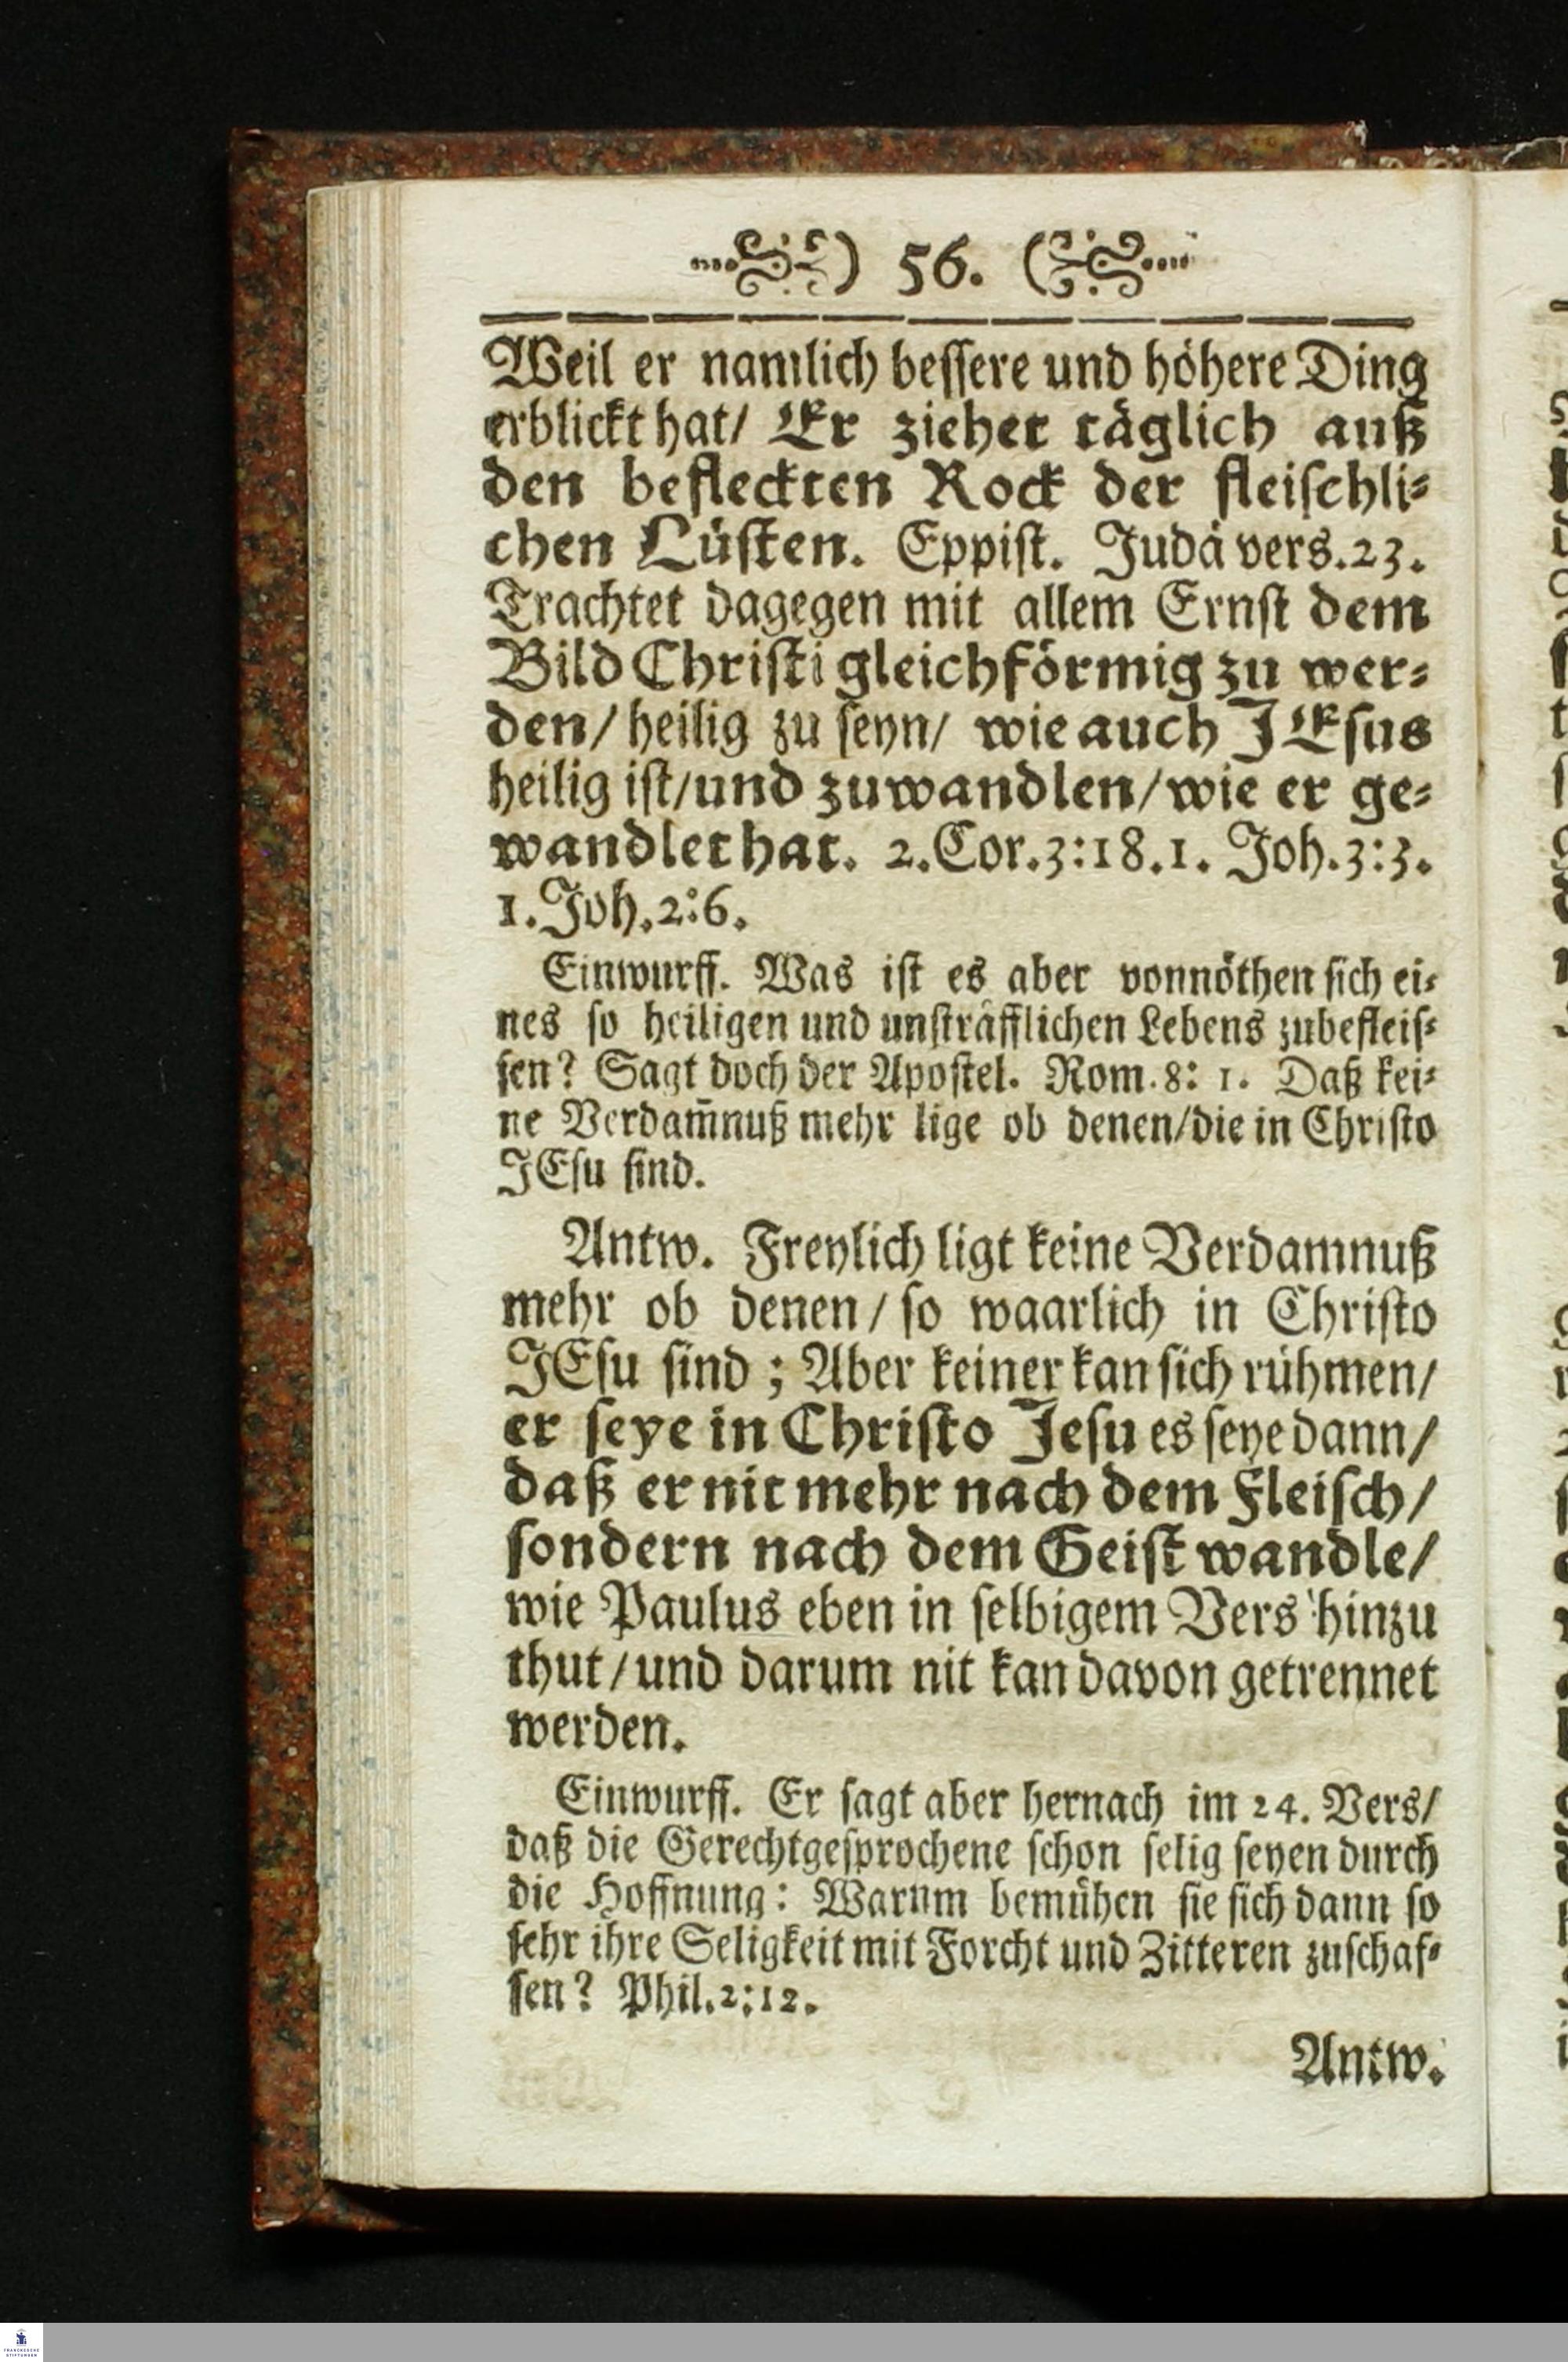 ) 56. (
Weil er namlich bessere und höhere Ding
erblickt hat/ Er ziehet täglich auß
den befleckten Rock der fleischli⸗
chen Lüsten. Eppist. Judä vers.23.
Trachtet dagegen mit allem Ernst dem
Bild Christi gleichförmig zu wer⸗
den/ heilig zu seyn/ wie auch JEsus
heilig ist/und zuwandlen/wie er ge⸗
wandlet hat. 2.Cor.3:18.1. Joh.3:3.
1.Joh.2:6.
Einwurff. Was ist es aber vonnöthen sich ei⸗
nes so heiligen und unsträfflichen Lebens zubefleis⸗
sen? Sagt doch der Apostel. Rom.8: 1. Daß kei⸗
ne Verdam̄nuß mehr lige ob denen/die in Christo
JEsu sind.
Antw. Freylich ligt keine Verdamnuß
mehr ob denen/ so waarlich in Christo
JEsu sind; Aber keiner kan sich rühmen/
er seye in Christo Jesu es seye dann/
daß er nit mehr nach dem Fleisch/
sondern nach dem Geist wandle/
wie Paulus eben in selbigem Vers hinzu
thut/und darum nit kan davon getrennet
werden.
Einwurff. Er sagt aber hernach im 24. Vers/
daß die Gerechtgesprochene schon selig seyen durch
die Hoffnung: Warum bemühen sie sich dann so
sehr ihre Seligkeit mit Forcht und Zitteren zuschaf⸗
fen? Phil.2:12.
Antw.
FRANCKESCHE
STIFTUNGEN